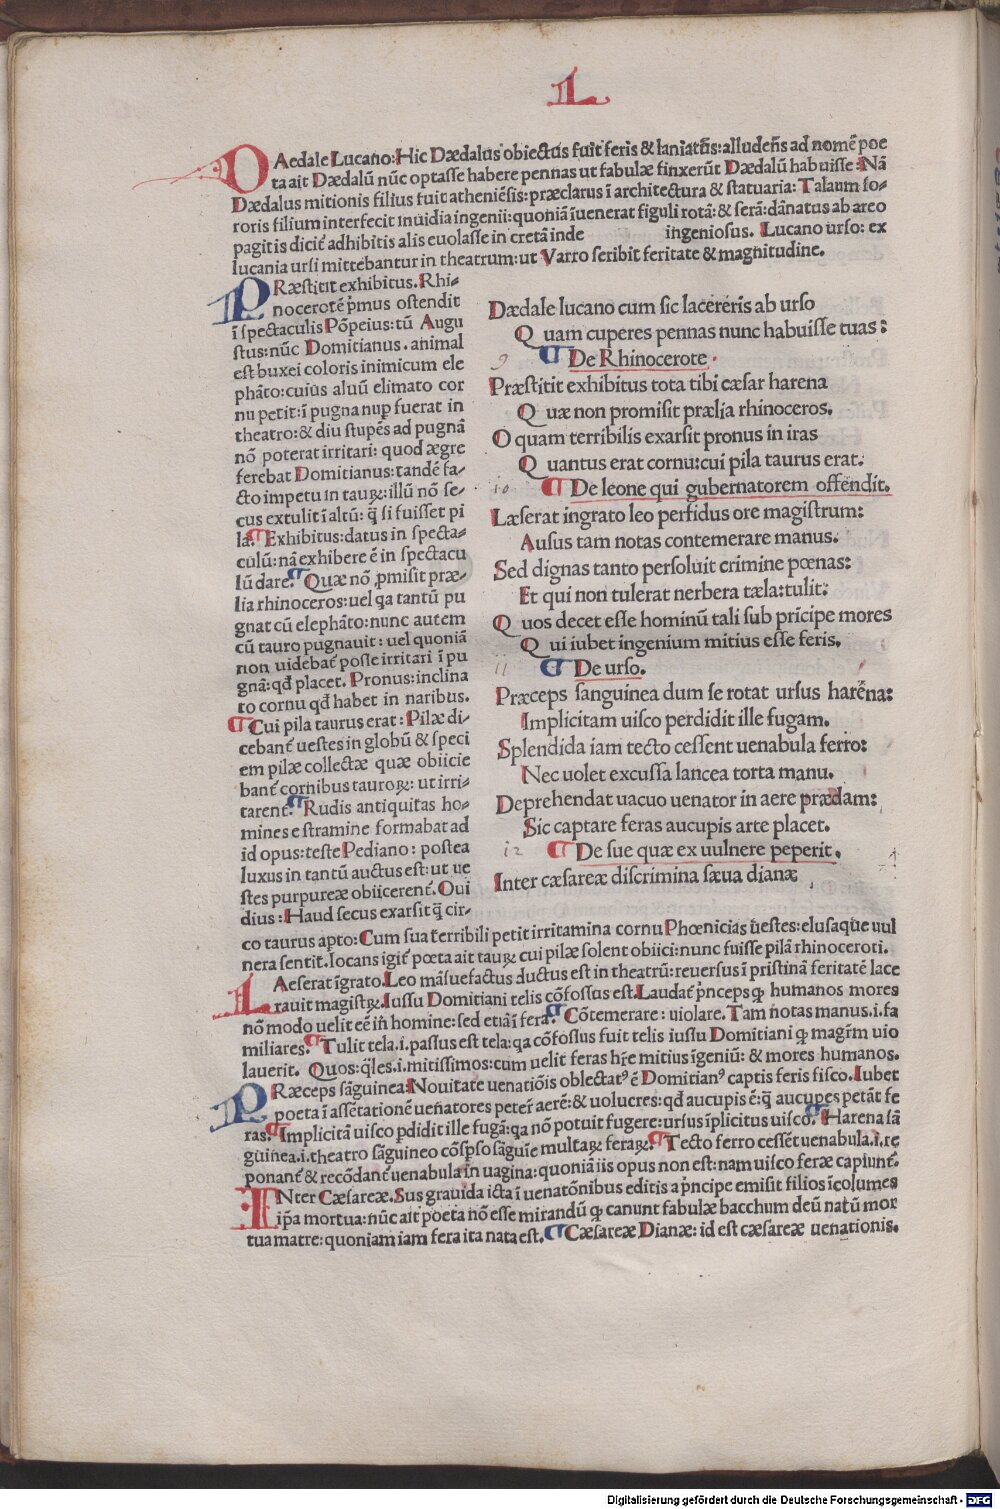 L
DAedale Lucano: Hic Dædalus obiectus fuit feris & laniatus̄: alludens ad nomē poe
ta ait Dædalū nūc optasse habere pennas ut fabulæ finxerūt Dædalū habuisse: Nā
Dædalus mitionis filius fuit atheniēsis: præclarus ī architectura & statuaria: Talaum so-
roris filium interfecit inuidia ingenii: quoniā īuenerat figuli rotā: & serā: dānatus ab areo
pagitis dicit̄ adhibitis alis euolasse in cretā inde ingeniosus. Lucano urso: ex
lucania ursi mittebantur in theatrum: ut Varro scribit feritate & magnitudine.
PRæstitit exhibitus. Rhi-
nocerotē p̄mus ostendit
ī spectaculis Pōpeius: tū Augu
stus: nūc Domitianus. animal
est buxei coloris inimicum ele
phāto: cuius aluū elimato cor
nu petit: ī pugna nup̱ fuerat in
theatro: & diu stupēs ad pugnā
nō poterat irritari: quod ægre
ferebat Domitianus: tandē fa-
cto impetu in tauꝝ: illū nō se-
cus extulit ī altū: q̄ si fuisset pi
la. ¶ Exhibitus: datus in specta-
culū: nā exhibere ē in spectacu
lū dare. ¶ Quæ nō ꝓmisit præ-
lia rhinoceros: uel qa tantū pu
gnat cū elephāto: nunc autem
cū tauro pugnauit: uel quoniā
non uidebat̄ posse irritari ī pu
gnā: qđ placet. Pronus: inclina
to cornu qđ habet in naribus.
¶ Cui pila taurus erat: Pilæ di-
cebant̄ uestes in globū & speci
em pilæ collectæ quæ obiicie
bant̄ cornibus tauroꝝ: ut irri-
tarent̄. ¶ Rudis antiquitas ho-
mines e stramine formabat ad
id opus: teste Pediano: postea
luxus in tantū auctus est: ut ue
stes purpureæ obiicerent̄. Oui
dius: Haud secus exarsit q̄ cir-
Dædale lucano cum sic lacereris ab urso
Quam cuperes pennas nunc habuisse tuas:
9 ¶ De Rhinocerote.
Præstitit exhibitus tota tibi cæsar harena
Quæ non promisit prælia rhinoceros.
O quam terribilis exarsit pronus in iras
Quantus erat cornu: cui pila taurus erat.
10 ¶ De leone qui gubernatorem offendit.
Læserat ingrato leo perfidus ore magistrum:
Ausus tam notas contemerare manus.
Sed dignas tanto persoluit crimine pœnas:
Et qui non tulerat nerbera tæla: tulit:
Quos decet esse hominū tali sub prīcipe mores
Qui iubet ingenium mitius esse feris.
11 ¶ De urso.
Præceps sanguinea dum se rotat ursus harēna:
Implicitam uisco perdidit ille fugam.
Splendida iam tecto cessent uenabula ferro:
Nec uolet excussa lancea torta manu.
Deprehendat uacuo uenator in aere prædam:
Sic captare feras aucupis arte placet.
12 ¶ De sue quæ ex uulnere peperit.
Inter cæsareæ discrimina sæua dianæ
co taurus apto: Cum sua terribili petit irritamina cornu Phœnicias uestes: elusaque uul
nera sentit. Iocans igit̄ poeta ait tauꝝ cui pilæ solent obiici: nunc fuisse pilā rhinoceroti.
LAeserat īgrato. Leo māsuefactus ductus est in theatrū: reuersus ī pristinā feritatē lace
rauit magistꝝ. Iussu Domitiani telis cōfossus est. Laudat̄ p̄nceps ꝙ humanos mores
nō modo uelit eē in̄ homine: sed etiā ī fera. ¶ Cōtemerare: uiolare. Tam notas manus .i. fa
miliares. ¶ Tulit tela .i. passus est tela: qa cōfossus fuit telis iussu Domitiani ꝙ magr̄m uio
lauerit. Quos: q̄les .i. mitissimos: cum uelit feras hr̄e mitius īgeniū: & mores humanos.
PRæceps sāguinea: Nouitate uenatiōis oblectatꝰ ē Domitianꝰ captis feris fisco. Iubet
poeta ī assētationē uenatores peter̄ aerē: & uolucres: qđ aucupis ē: q̄ aucupes petāt fe
ras. ¶ Implicitā uisco ꝑdidit ille fugā: qa nō potuit fugere: ursus īplicitus uisco. ¶ Harena sā
guinea .i. theatro sāguineo cōsp̱so sāguīe multaꝝ feraꝝ. ¶ Tecto ferro cessēt uenabula .i. re
ponant̄ & recōdant̄ uenabula in uagina: quoniā iis opus non est: nam uisco feræ capiunt̄.
INter Cæsareæ. Sus grauida icta ī uenatōnibus editis a p̄ncipe emisit filios īcolumes
ip̄a mortua: nūc ait poeta nō esse mirandū ꝙ canunt fabulæ bacchum deū natū mor
tua matre: quoniam iam fera ita nata est. ¶ Cæsareæ Dianæ: id est cæsareæ uenationis.
Digitalisierung gefördert durch die Deutsche Forschungsgemeinschaft - DFG